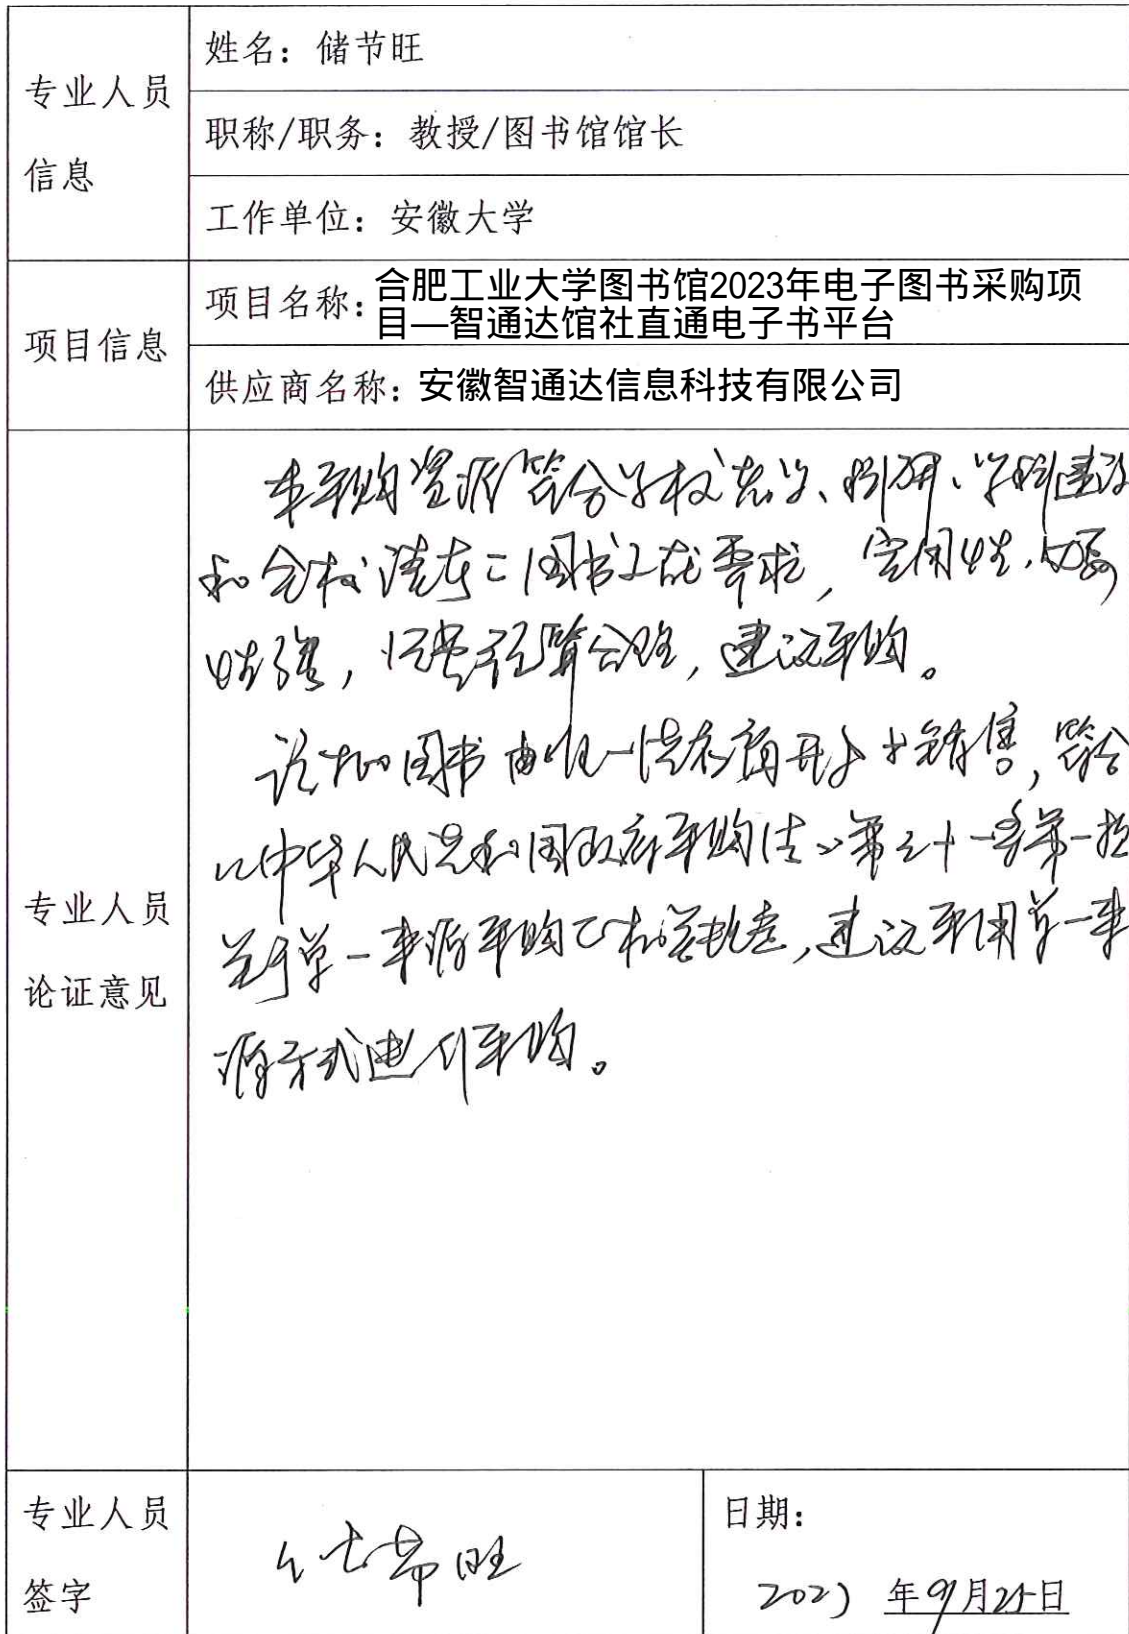 专业人员
信息
姓名：储节旺
职称/职务：教授/图书馆馆长
工作单位：安徽大学
项目信息
项目名称：合肥工业大学图书馆2023年电子图书采购项
目—智通达馆社直通电子书平台
供应商名称：安徽智通达信息科技有限公司
专业人员
论证意见
本采购资源符合学校教学、科研、学科建设
和全校读者图书需求，实用性、必要
性强，经费预算合理，建议采购。
图书由唯一供应商开发销售，符合
《中华人民共和国政府采购法》第三十一条第一款
关于单一来源采购，建议采用单一来
源方式进行采购。
专业人员
签字
储节旺
日期：
2023年9月25日